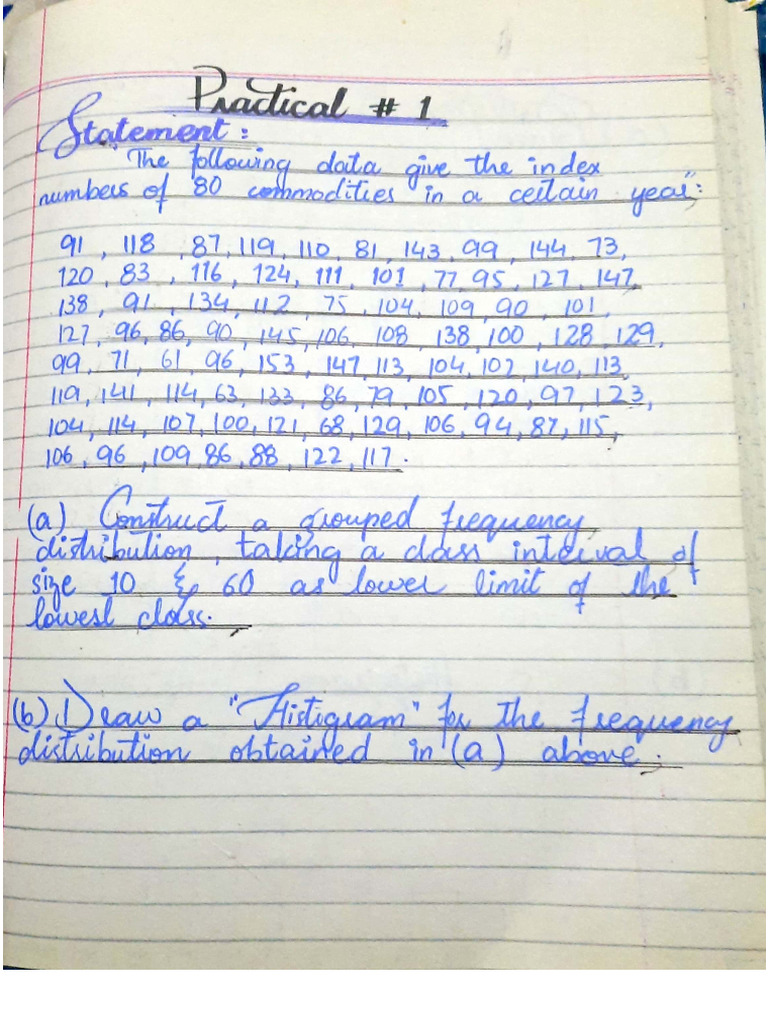 Practical # 1
Statement:
The following data give the index
numbers of 80 commodities in a certain year":
91, 118, 87, 119, 110, 81, 143, 99, 144, 73,
120, 83, 116, 124, 111, 101, 77, 95, 127, 147
138, 91, 134, 112, 75, 104, 109, 90, 101,
127, 96, 86, 90, 145, 106, 108, 138, 100, 128, 129,
99, 71, 61, 96, 153, 147, 113, 104, 102, 140, 113
119, 141, 114, 63, 133, 86, 79, 105, 120, 97, 123,
104, 114, 107, 100, 121, 68, 129, 106, 94, 87, 115,
106, 96, 109, 86, 88, 122, 117.
(a) Construct a grouped frequency
distribution, taking a class interval of
size 10 & 60 as lower limit of the
lowest class.
(b) Draw a "Histigram" for the frequency
distribution obtained in (a) above.